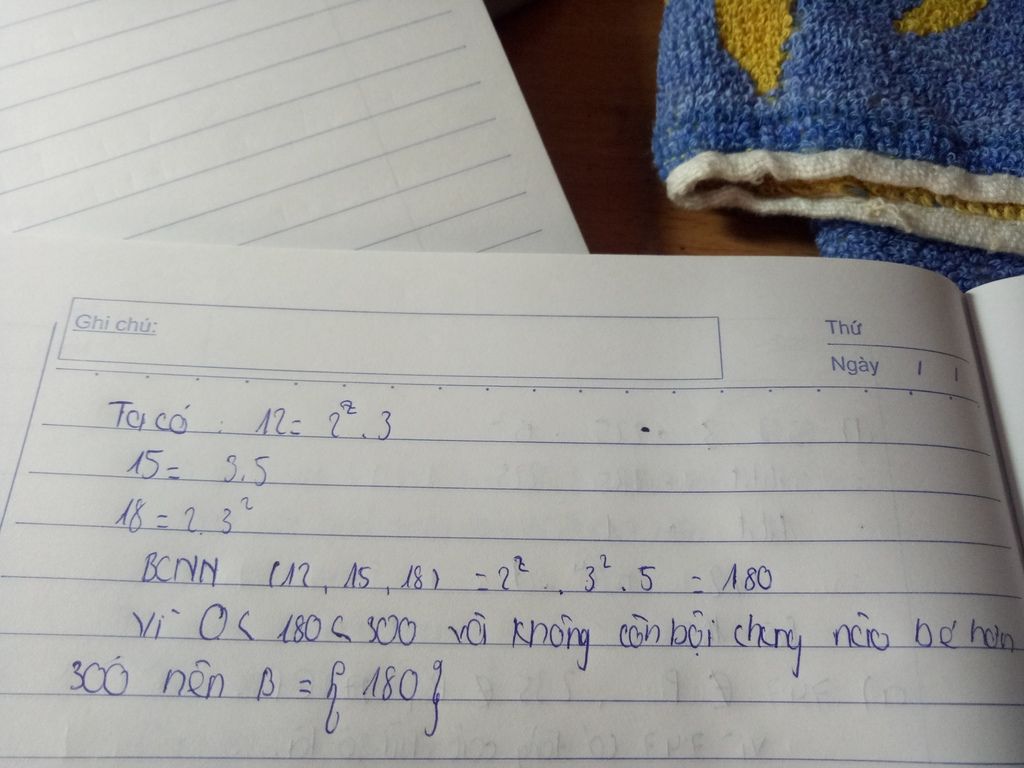 Ghi chú:
Thứ
Ngày / /
Ta có : 12 = 2². 3
15 = 3.5
18 = 2.3²
BCNN (12, 15, 18) = 2² . 3² . 5 = 180
Vì 0 < 180 < 300 và không còn bội chung nào bé hơn
300 nên B = { 180 }